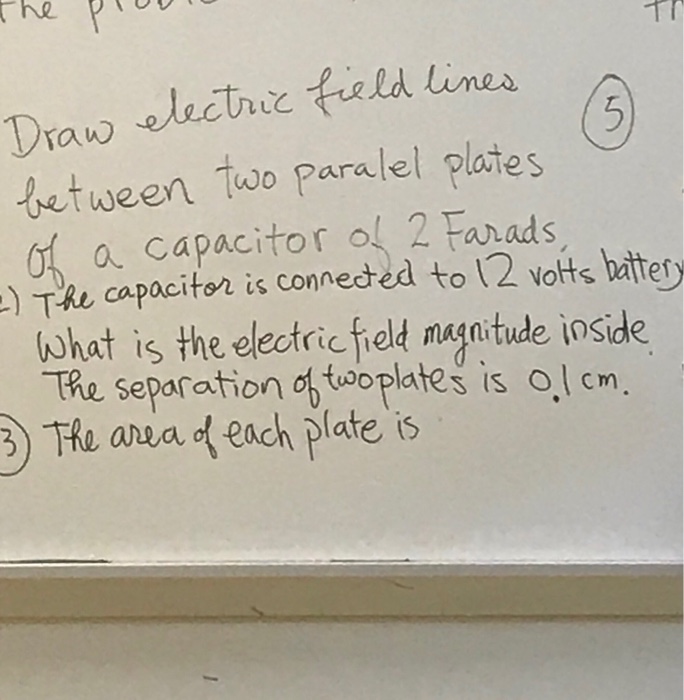 the
Draw electric field lines
5
between two paralel plates
of a capacitor of 2 Farads,
2) The capacitor is connected to 12 volts battery
What is the electric field magnitude inside.
The separation of two plates is 0.1 cm.
3) The area of each plate is